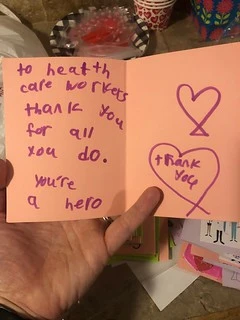 to health
care workers
thank you
for all
you do.
you're
a hero
thank
you